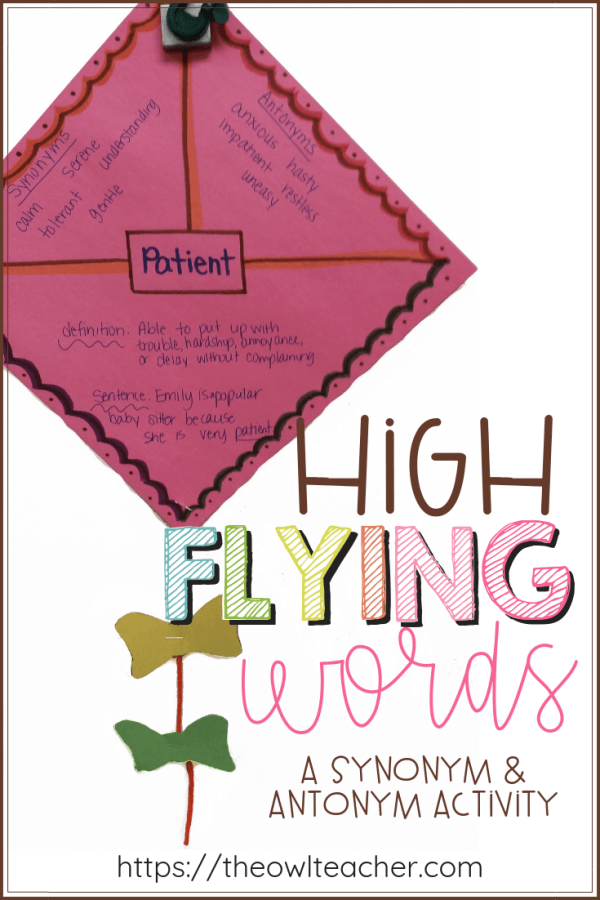 Synonyms
calm serene understanding
tolerant gentle
Antonyms
anxious hasty
impatient restless
uneasy
Patient
definition: Able to put up with
trouble, hardship, annoyance,
or delay without complaining
Sentence: Emily is a popular
baby sitter because
she is very patient
HIGH
FLYING
words
A SYNONYM &
ANTONYM ACTIVITY
https://theowlteacher.com